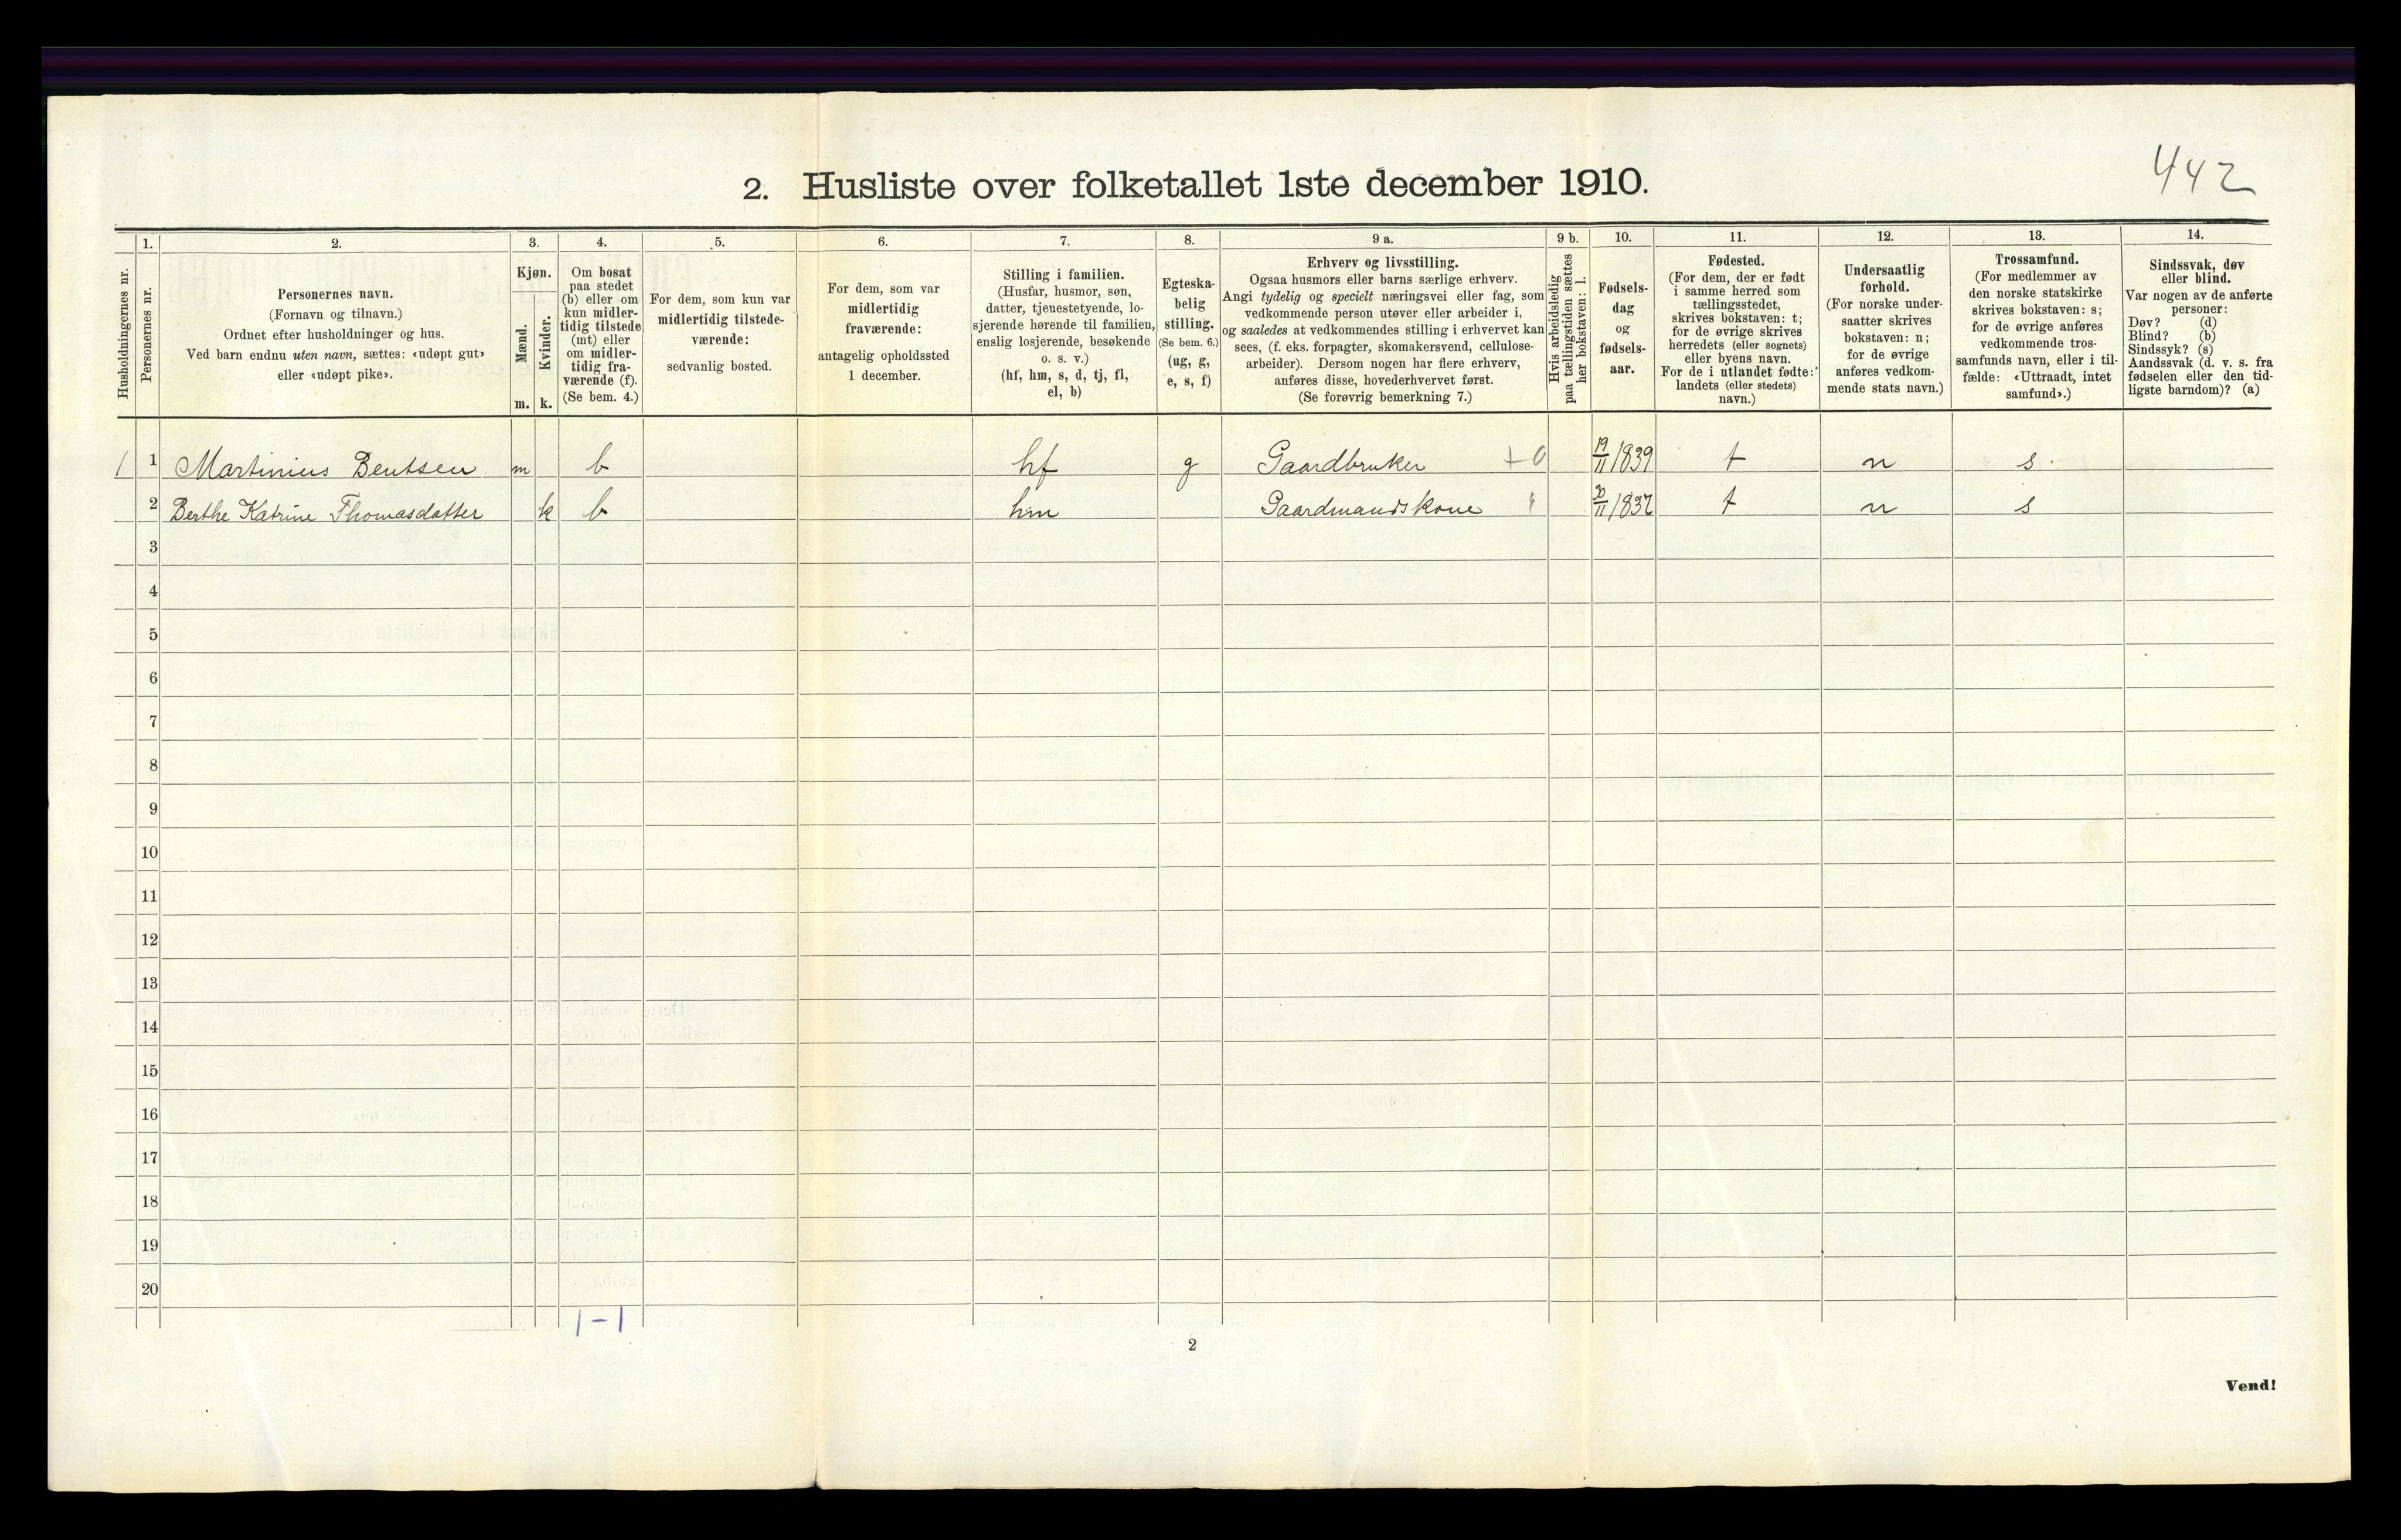 442
2. Husliste over folketallet 1ste december 1910.
Husholdningernes nr.
1.
Personernes nr.
2.
Personernes navn.
(Fornavn og tilnavn.)
Ordnet efter husholdninger og hus.
Ved barn endnu uten navn, sættes: «udøpt gut»
eller «udøpt pike».
3.
Kjøn.
Mænd.
Kvinder.
m. k.
4.
Om bosat
paa stedet
(b) eller om
kun midler-
tidig tilstede
(mt) eller
om midler-
tidig fra-
værende (f).
(Se bem. 4.)
5.
For dem, som kun var
midlertidig tilstede-
værende:
sedvanlig bosted.
6.
For dem, som var
midlertidig
fraværende:
antagelig opholdssted
1 december.
7.
Stilling i familien.
(Husfar, husmor, søn,
datter, tjenestetyende, lo-
sjerende hørende til familien,
enslig losjerende, besøkende
o. s. v.)
(hf, hm, s, d, tj, fl,
el, b)
8.
Egteska-
belig
stilling.
(Se bem. 6.)
(ug, g,
e, s, f)
9 a.
Erhverv og livsstilling.
Ogsaa husmors eller barns særlige erhverv.
Angi tydelig og specielt næringsvei eller fag, som
vedkommende person utøver eller arbeider i,
og saaledes at vedkommendes stilling i erhvervet kan
sees, (f. eks. forpagter, skomakersvend, cellulose-
arbeider). Dersom nogen har flere erhverv,
anføres disse, hovederhvervet først.
(Se forøvrig bemerkning 7.)
9 b.
Hvis arbeidsledig
paa tællingstiden sættes
her bokstaven: l.
10.
Fødsels-
dag
og
fødsels-
aar.
11.
Fødested.
(For dem, der er født
i samme herred som
tællingsstedet,
skrives bokstaven: t;
for de øvrige skrives
herredets (eller sognets)
eller byens navn.
For de i utlandet fødte:
landets (eller stedets)
navn.)
12.
Undersaatlig
forhold.
(For norske under-
saatter skrives
bokstaven: n;
for de øvrige
anføres vedkom-
mende stats navn.)
13.
Trossamfund.
(For medlemmer av
den norske statskirke
skrives bokstaven: s;
for de øvrige anføres
vedkommende tros-
samfunds navn, eller i til-
fælde: «Uttraadt, intet
samfund».)
14.
Sindssvak, døv
eller blind.
Var nogen av de anførte
personer:
Døv? (d)
Blind? (b)
Sindssyk? (s)
Aandssvak (d. v. s. fra
fødselen eller den tid-
ligste barndom)? (a)
1 1 Martinius Bentsen m b hf g Gaardbruker +0 19/11 1839 t n s
2 Berthe Katrine Thomasdatter k b hm Gaardmandskone 30/11 1837 t n s
3
4
5
6
7
8
9
10
11
12
13
14
15
16
17
18
19
20
1-1
2
Vend!